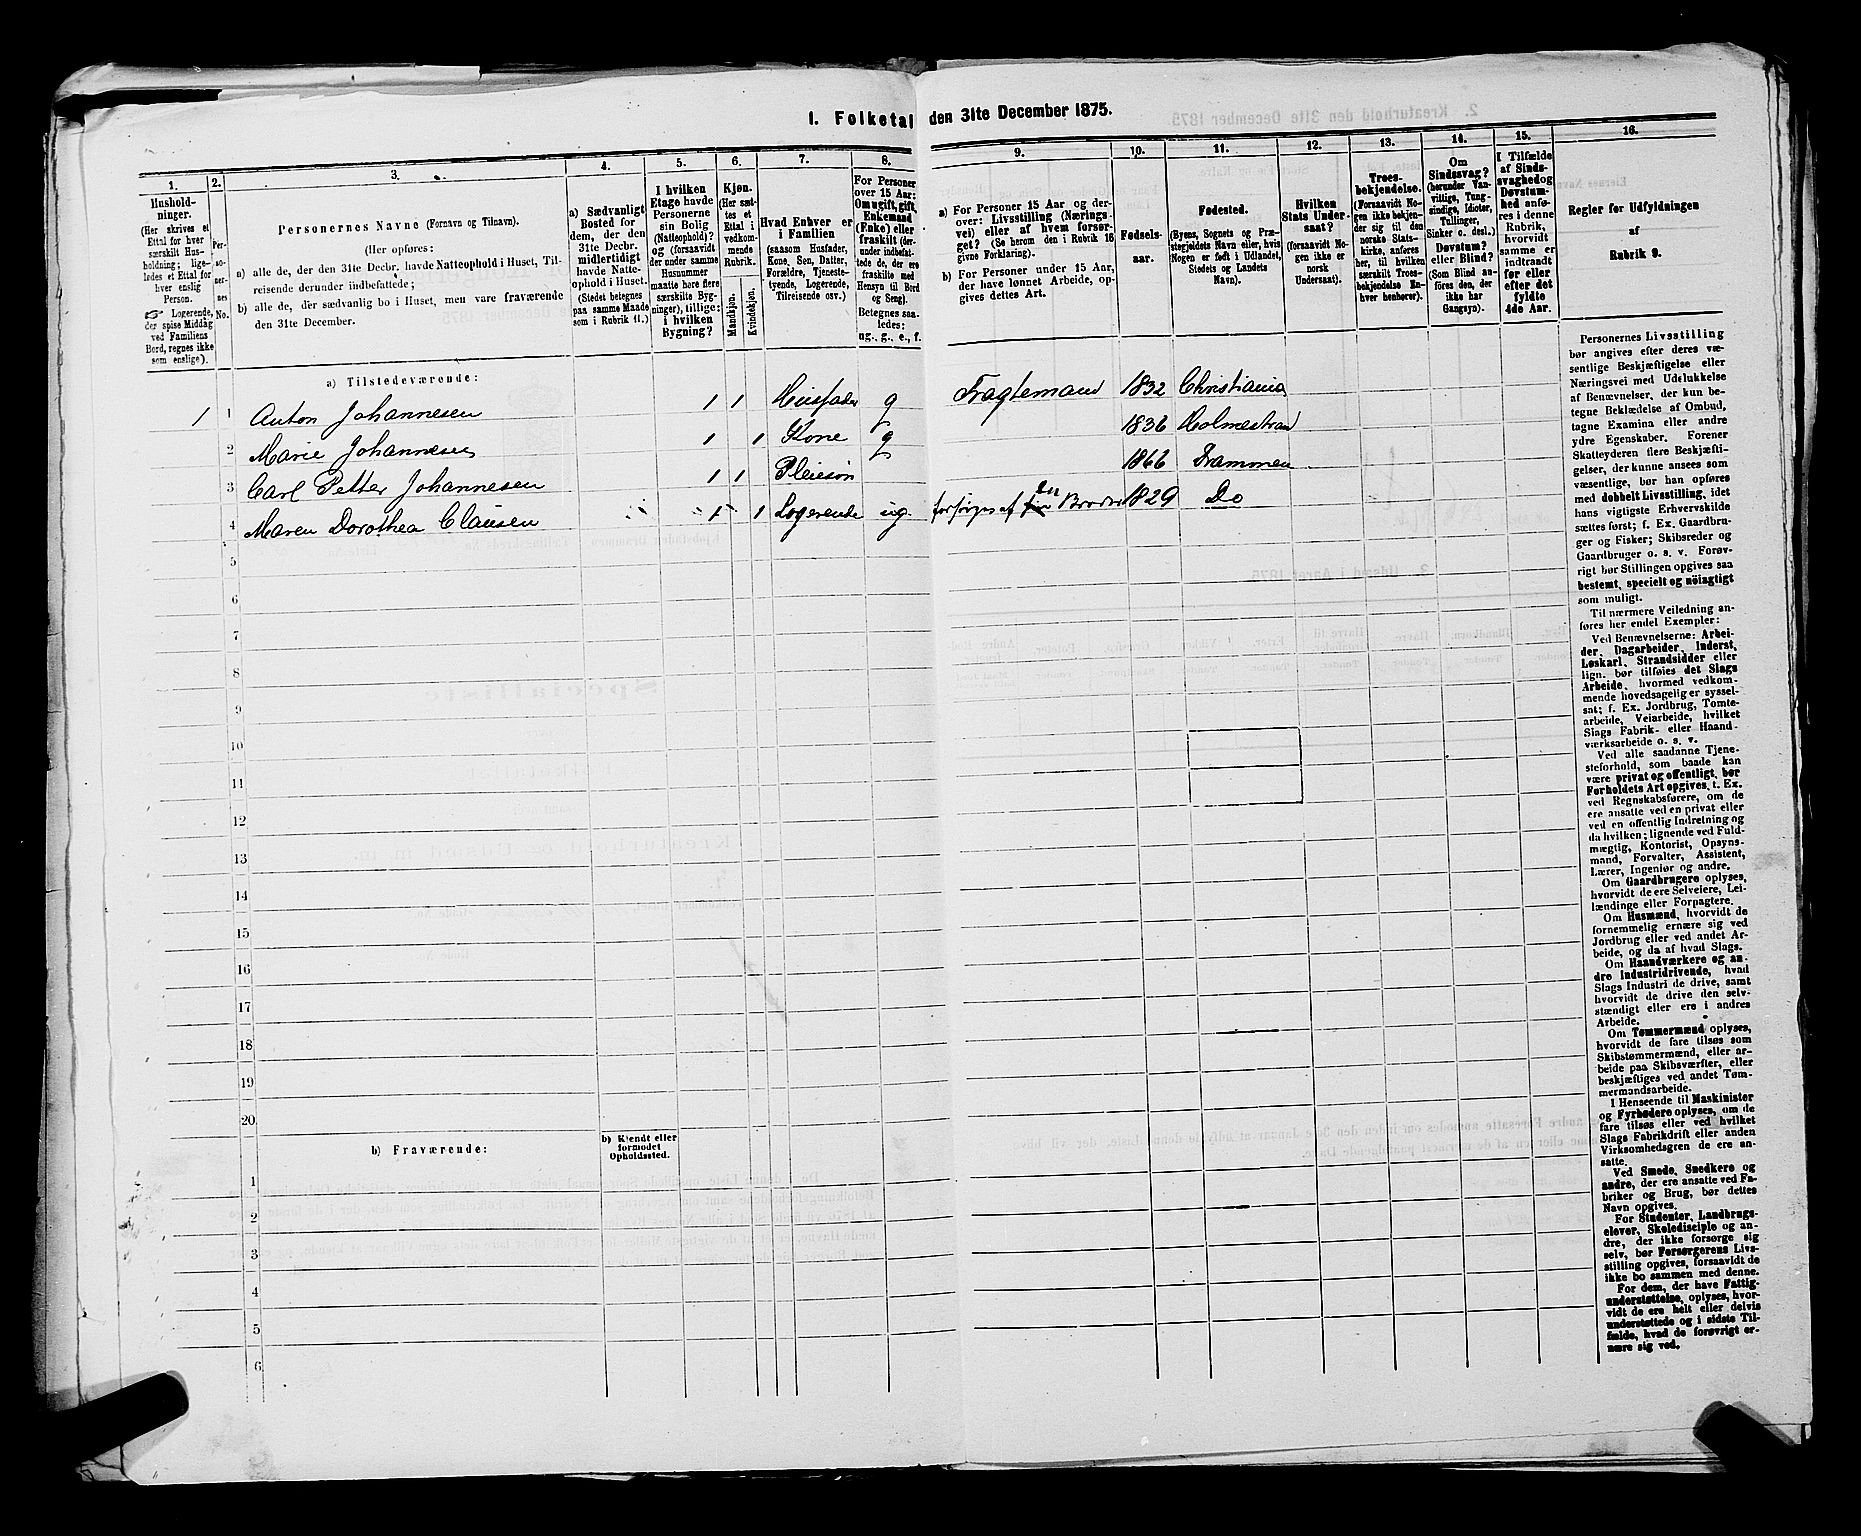 1. Folketal den 31te December 1875.
1. 2. 3. 4. 5. 6. 7. 8. 9. 10. 11. 12. 13. 14. 15. 16.
Hushold-
ninger.
(Her skrives et
Ettal for hver
særskilt Hus-
holdning; lige-
ledes et Ettal for
hver enslig
Person.
☞ Logerende,
der spise Middag
ved Familiens
Bord, regnes ikke
som enslige).
Per-
so-
ner-
nes
No.
Personernes Navne (Fornavn og Tilnavn).
(Her opføres:
a) alle de, der den 31te Decbr. havde Natteophold i Huset, Til-
reisende derunder indbefattede;
b) alle de, der sædvanlig bo i Huset, men vare fraværende
den 31te December.
a) Sædvanligt
Bosted for
dem, der den
31te Decbr.
midlertidigt
havde Natte-
ophold i Huset.
(Stedet betegnes
paa samme Maade
som i Rubrik 11.)
I hvilken
Etage havde
Personerne
sin Bolig
(Natteophold)?
og (forsaavidt
der under samme
Husnummer
maatte høre flere
særskilte Byg-
ninger), tillige:
i hvilken
Bygning?
Kjøn.
(Her sæt-
tes et
Ettal i
vedkom-
mende
Rubrik.
Mandkjøn.
Kvindekjøn.
Hvad Enhver er
i Familien
(saasom Husfader,
Kone, Søn, Datter,
Forældre, Tjeneste-
tyende, Logerende,
Tilreisende osv.)
For Personer
over 15 Aar:
Om ugift, gift,
Enkemand
(Enke) eller
fraskilt (der-
under indbefat-
tede de, der ere
fraskilte med
Hensyn til Bord
og Seng).
Betegnes saa-
ledes:
ug., g., e., f.
a) For Personer 15 Aar og der-
over: Livsstilling (Nærings-
vei) eller af hvem forsør-
get? (Se herom den i Rubrik 16
givne Forklaring).
b) For Personer under 15 Aar,
der have lønnet Arbeide, op-
gives dettes Art.
Fødsels-
aar.
Fødested.
(Byens, Sognets og Præ-
stegjeldets Navn eller, hvis
Nogen er født i Udlandet,
Stedets og Landets
Navn).
Hvilken
Stats Under-
saat?
(forsaavidt No-
gen ikke er
norsk
Undersaat).
Troes-
bekjendelse.
(Forsaavidt No-
gen ikke bekjen-
der sig til den
norske Stats-
kirke, anføres
her, til hvilken
særskilt Troes-
bekjendelse En-
hver henhører).
Om
Sindssvag?
(herunder Van-
vittige, Tung-
sindige, Idioter,
Tullinger,
Sinker o. desl.)
Døvstum?
eller Blind?
(Som Blind an-
føres den, der
ikke har
Gangsyn).
I Tilfælde
af Sinds-
svaghed og
Døvstum-
hed anfø-
res i denne
Rubrik,
hvorvidt
samme er
indtraadt
før eller
efter det
fyldte
4de Aar.
Regler for Udfyldningen
af
Rubrik 9.
a) Tilstedeværende:
1 1 Anton Johannesen 1 1 Husfader g Fragtemand 1832 Christiania
2 Marie Johannesen 1 1 Kone g 1836 Holmestran
3 Carl Petter Johannesen 1 1 Pleiesøn 1866 Drammen
4 Maren Dorothea Clausen 1 1 Logerende ug. forsørges af en Broder 1829 Do
5
6
7
8
9
10
11
12
13
14
15
16
17
18
19
20
b) Fraværende:
b) Kjendt eller
formodet
Opholdssted.
1
2
3
4
5
6
Personernes Livsstilling
bør angives efter deres væ-
sentlige Beskjæftigelse eller
Næringsvei med Udelukkelse
af Benævnelser, der kun be-
tegne Beklædelse af Ombud,
tagne Examina eller andre
ydre Egenskaber. Forener
Skatteyderen flere Beskjæfti-
gelser, der kunne ansees som
væsentlige, bør han opføres
med dobbelt Livsstilling, idet
hans vigtigste Erhvervskilde
sættes først; f. Ex. Gaardbru-
ger og Fisker; Skibsreder og
Gaardbruger o. s. v. Forøv-
rigt bør Stillingen opgives saa
bestemt, specielt og nöiagtigt
som muligt.
Til nærmere Veiledning an-
føres her endel Exempler:
Ved Benævnelserne: Arbei-
der, Dagarbeider, Inderst,
Løskarl, Strandsidder eller
lign. bør tilføies det Slags
Arbeide, hvormed vedkom-
mende hovedsagelig er syssel-
sat; f. Ex. Jordbrug, Tomte-
arbeide, Veiarbeide, hvilket
Slags Fabrik- eller Haand-
værksarbeide o. s. v.
Ved alle saadanne Tjene-
steforhold, som baade kan
være privat og offentligt, bør
Forholdets Art opgives, t. Ex.
ved Regnskabsførere, om de
ere ansatte ved en privat eller
ved en offentlig Indretning og
da hvilken; lignende ved Fuld-
mægtig, Kontorist, Opsyns-
mand, Forvalter, Assistent,
Lærer, Ingeniør og andre.
Om Gaardbrugere oplyses,
hvorvidt de ere Selveiere, Lei-
lændinge eller Forpagtere.
Om Husmænd, hvorvidt de
fornemmelig ernære sig ved
Jordbrug eller ved andet Ar-
beide, og da af hvad Slags.
Om Haandværkere og an-
dre Industridrivende, hvad
Slags Industri de drive, samt
hvorvidt de drive den selv-
stændigt eller ere i andres
Arbeide.
Om Tømmermænd oplyses,
hvorvidt de fare tilsøs som
Skibstømmermænd, eller ar-
beide paa Skibsværfter, eller
beskjæftiges ved andet Tøm-
mermandsarbeide.
I Henseende til Maskinister
og Fyrbødere oplyses, om de
fare tilsøs eller ved hvilket
Slags Fabrikdrift eller anden
Virksomhedsgren de ere an-
satte.
Ved Smede, Snedkere og
andre, der ere ansatte ved Fa-
briker og Brug, bør dettes
Navn opgives.
For Studenter, Landbrugs-
elever, Skoledisciple og an-
dre, der ikke forsørge sig
selv, bør Forsørgerens Livs-
stilling opgives, forsaavidt de
ikke bo sammen med denne.
For dem, der have Fattig-
understøttelse, oplyses, hvor-
vidt de ere helt eller delvis
understøttede og i sidste Til-
fælde, hvad de forøvrigt er-
nære sig ved.